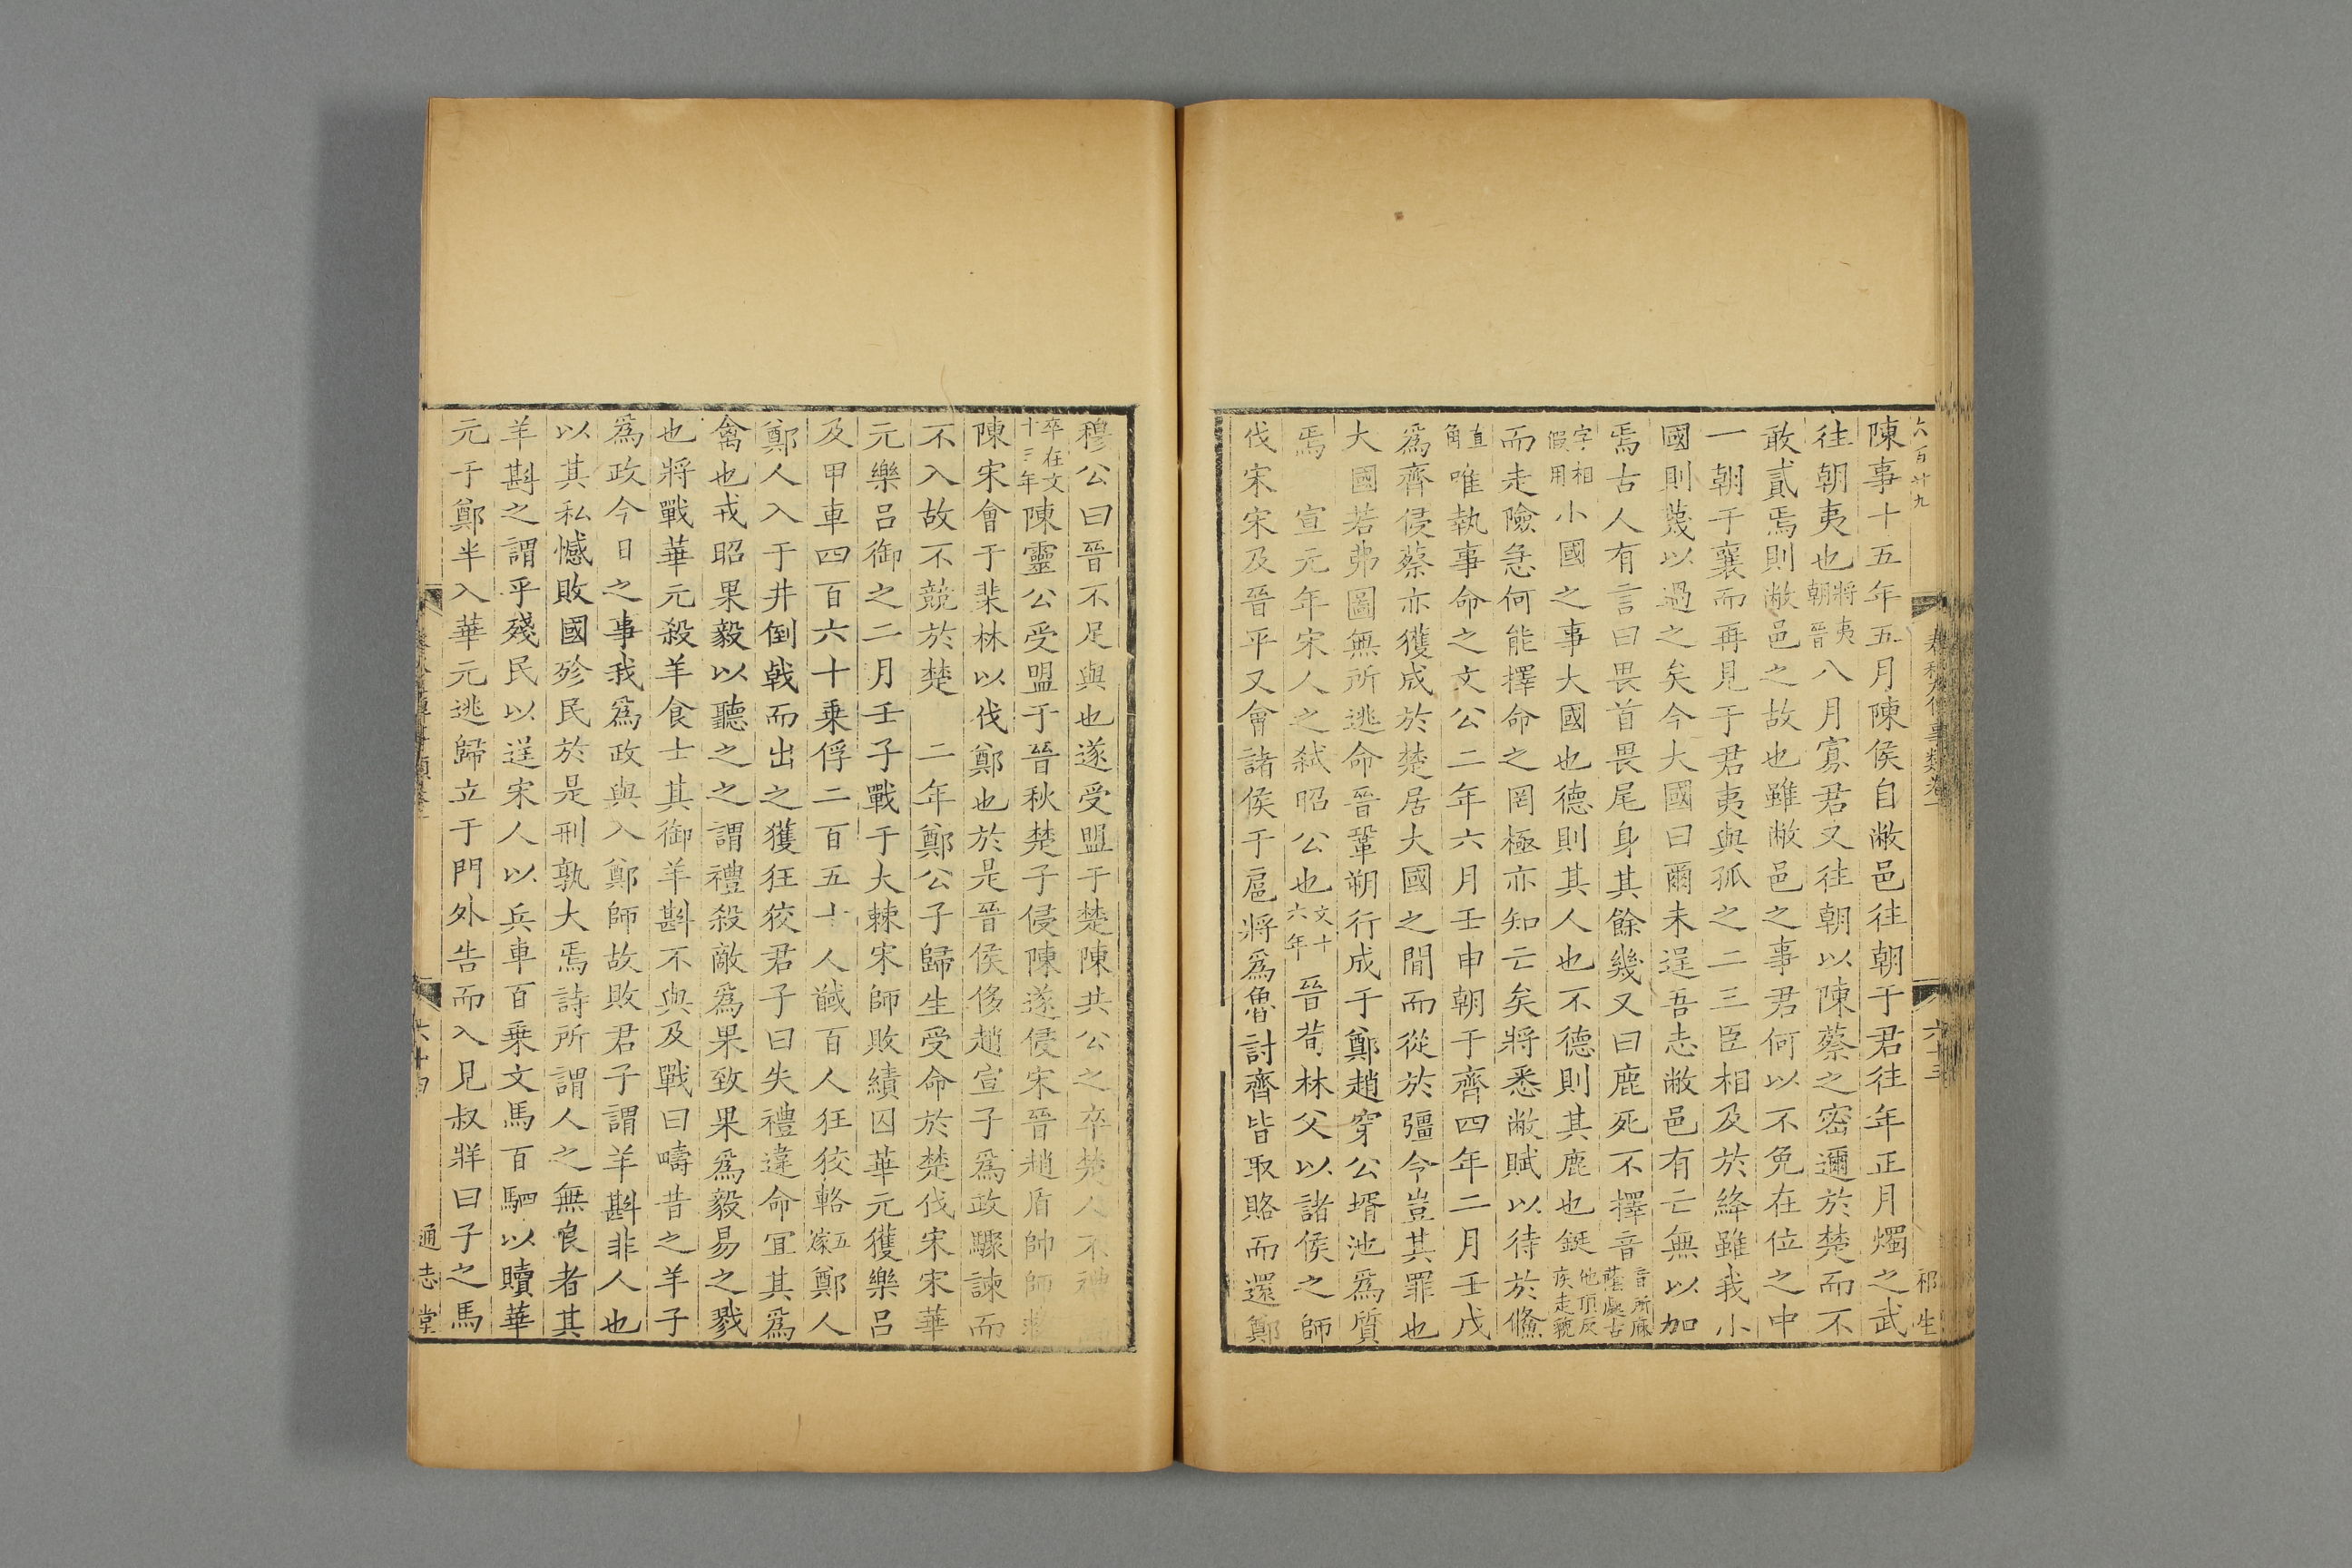 六百廿九
祁生
陳事十五年五月陳侯自敝邑往朝于君往年正月燭之武
往朝夷也將夷朝晉八月寡君又往朝以陳蔡之密邇於楚而不
敢貳焉則敝邑之故也雖敝邑之事君何以不免在位之中
一朝于襄而再見于君夷與孤之二三臣相及於絳雖我小
國則蔑以過之矣今大國曰爾未逞吾志敝邑有亡無以加
焉古人有言曰畏首畏尾身其餘幾又曰鹿死不擇音音所庥蔭處古
字相假用小國之事大國也德則其人也不德則其鹿也鋌他頂反疾走貌
而走險急何能擇命之罔極亦知亡矣將悉敝賦以待於鯈
直角唯執事命之文公二年六月壬申朝于齊四年二月壬戌
爲齊侵蔡亦獲成於楚居大國之閒而從於彊令豈其罪也
大國若弗圖無所逃命晉鞏朔行成于鄭趙穿公壻池爲質
焉 宣元年宋人之弑昭公也文十六年晉荀林父以諸侯之師
伐宋宋及晉平又會諸侯于扈將爲魯討齊皆取賂而還鄭
穆公曰晉不足與也遂受盟于楚陳共公之卒楚人不禮
卒在文十三年陳靈公受盟于晉秋楚子侵陳遂侵宋晉趙盾帥師
陳宋會于棐林以伐鄭也於是晉侯侈趙宣子爲政驟諫而
不入故不競於楚 二年鄭公子歸生受命於楚伐宋宋華
元樂呂御之二月壬子戰于大棘宋師敗績囚華元獲樂呂
及甲車四百六十乗俘二百五十人馘百人狂狡輅五嫁鄭人
鄭人入于井倒戟而出之獲狂狡君子曰失禮違命宜其爲
禽也戎昭果毅以聽之之謂禮殺敵爲果致果爲毅易之戮
也將戰華元殺羊食士其御羊斟不與及戰曰疇昔之羊子
爲政今日之事我爲政與入鄭師故敗君子謂羊斟非人也
以其私憾敗國殄民於是刑孰大焉詩所謂人之無良者其
羊斟之謂乎殘民以逞宋人以兵車百乗文馬百駟以贖華
元于鄭半入華元逃歸立于門外告而入見叔牂曰子之馬
通志堂